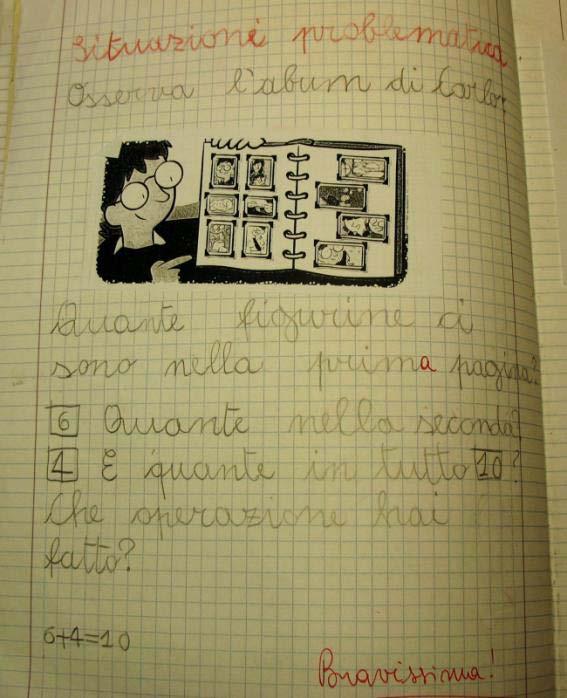 Situazione problematica
Osserva l'album di Carlo.
Quante figurine ci
sono nella prima pagina?
6 Quante nella seconda?
4 E quante in tutto 10?
Che operazione hai
fatto?
6+4=10
Bravissima!